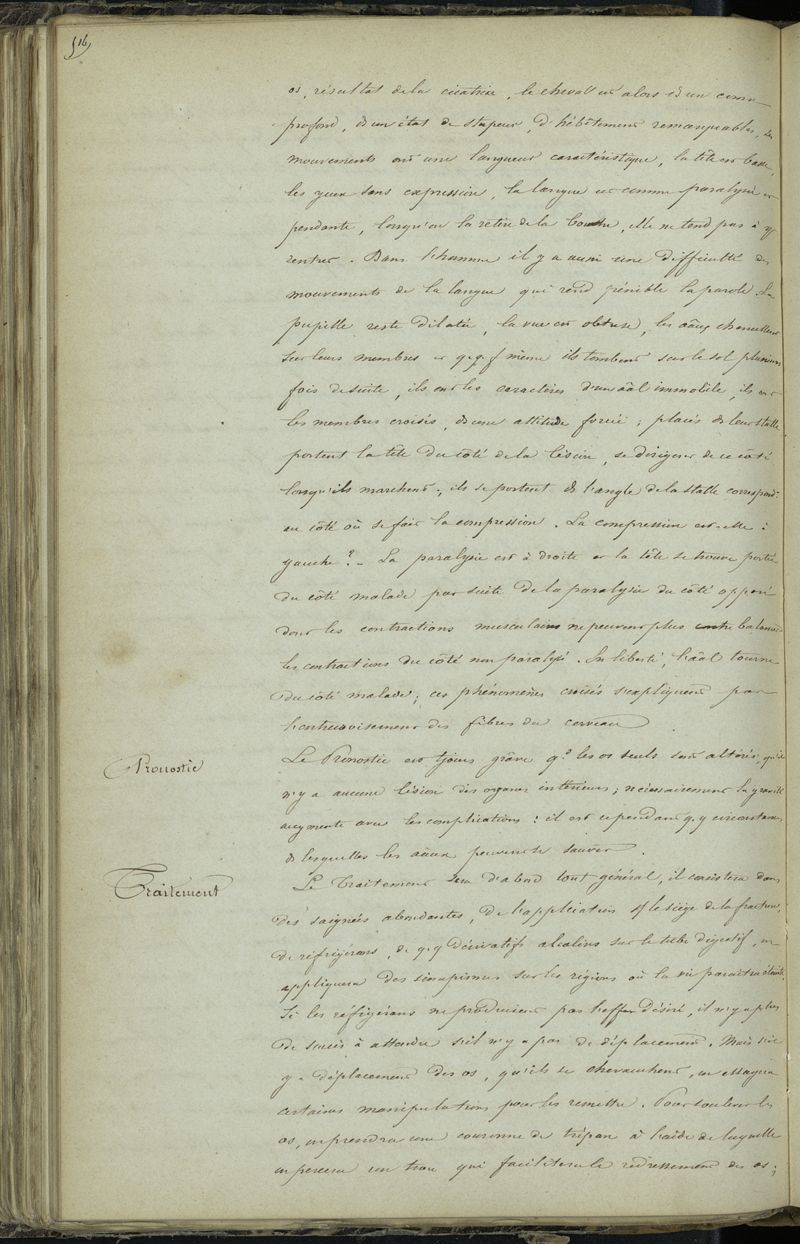 516
os, résultat de la cicatrice, le cheval est alors ds un coma
profond, ds un état de stupeur, d'hébêtement remarquables, les
mouvements ont une langueur caractéristique, la tête est basse,
les yeux sans expression, la langue est comme paralysée et
pendante, lorsqu'on la retire de la bouche, elle ne tend pas à y
rentrer. Dans l'homme il y a aussi une difficulté des
mouvements de la langue qui rend pénible la parole. La
pupille reste dilatée, la vue est obtuse, les aäux chancellent
sur leurs membres et qq f même ils tombent sur le sol plusieurs
fois de suite, ils ont les caractères d'un aäl immobile, ils ont
les membres croisés, ds une attitude forcée ; placés ds leur stalle
portent la tête du côté de la lésion, se dirigent de ce côté
lorsqu'ils marchent ; ils se portent ds l'angle de la stalle correspond.
au côté où se fait la compression. La compression est-elle à
gauche ? - La paralysie est à droite et la tête se trouve portée
du côté malade par suite de la paralysie du côté opposé
dont les contractions musculaires ne peuvent plus balancer
les contractions du côté non paralysé. En liberté, l'aäl tourne
du côté malade ; ces phénomènes croisés s'expliquent par
l'entrecroisement des fibres du cerveau
Pronostic
Le Pronostic est tjours grave qd les os seuls sont altérés, qu'il
n'y a aucune lésion des organes intérieurs ; nécessairement la gravité
augmente avec les complications : il est cependant qq circonstances
ds lesquelles les aäux peuvent se sauver.
Traitement
Le Traitement sera d'abord tout général, il consistera dans
des saignées abondantes, de l'application s/ le siège de la fracture,
de réfrigérans, de qq dérivatifs alcalins sur le tube digestif, on
appliquera des sinapismes sur les régions où la vie paraîtra éteinte.
Si les réfrigérans ne produisent pas l'effet désiré, il n'y a plus
de succès à attendre s'il n'y a pas de déplacement. Mais s'il
y a déplacement des os, qu'ils se chevauchent, on essayera
certaines manipulations pour les remettre. Pour soulever les
os, on prendra une couronne de trépan à l'aide de laquelle
on percera un trou qui facilitera le redressement des os ;